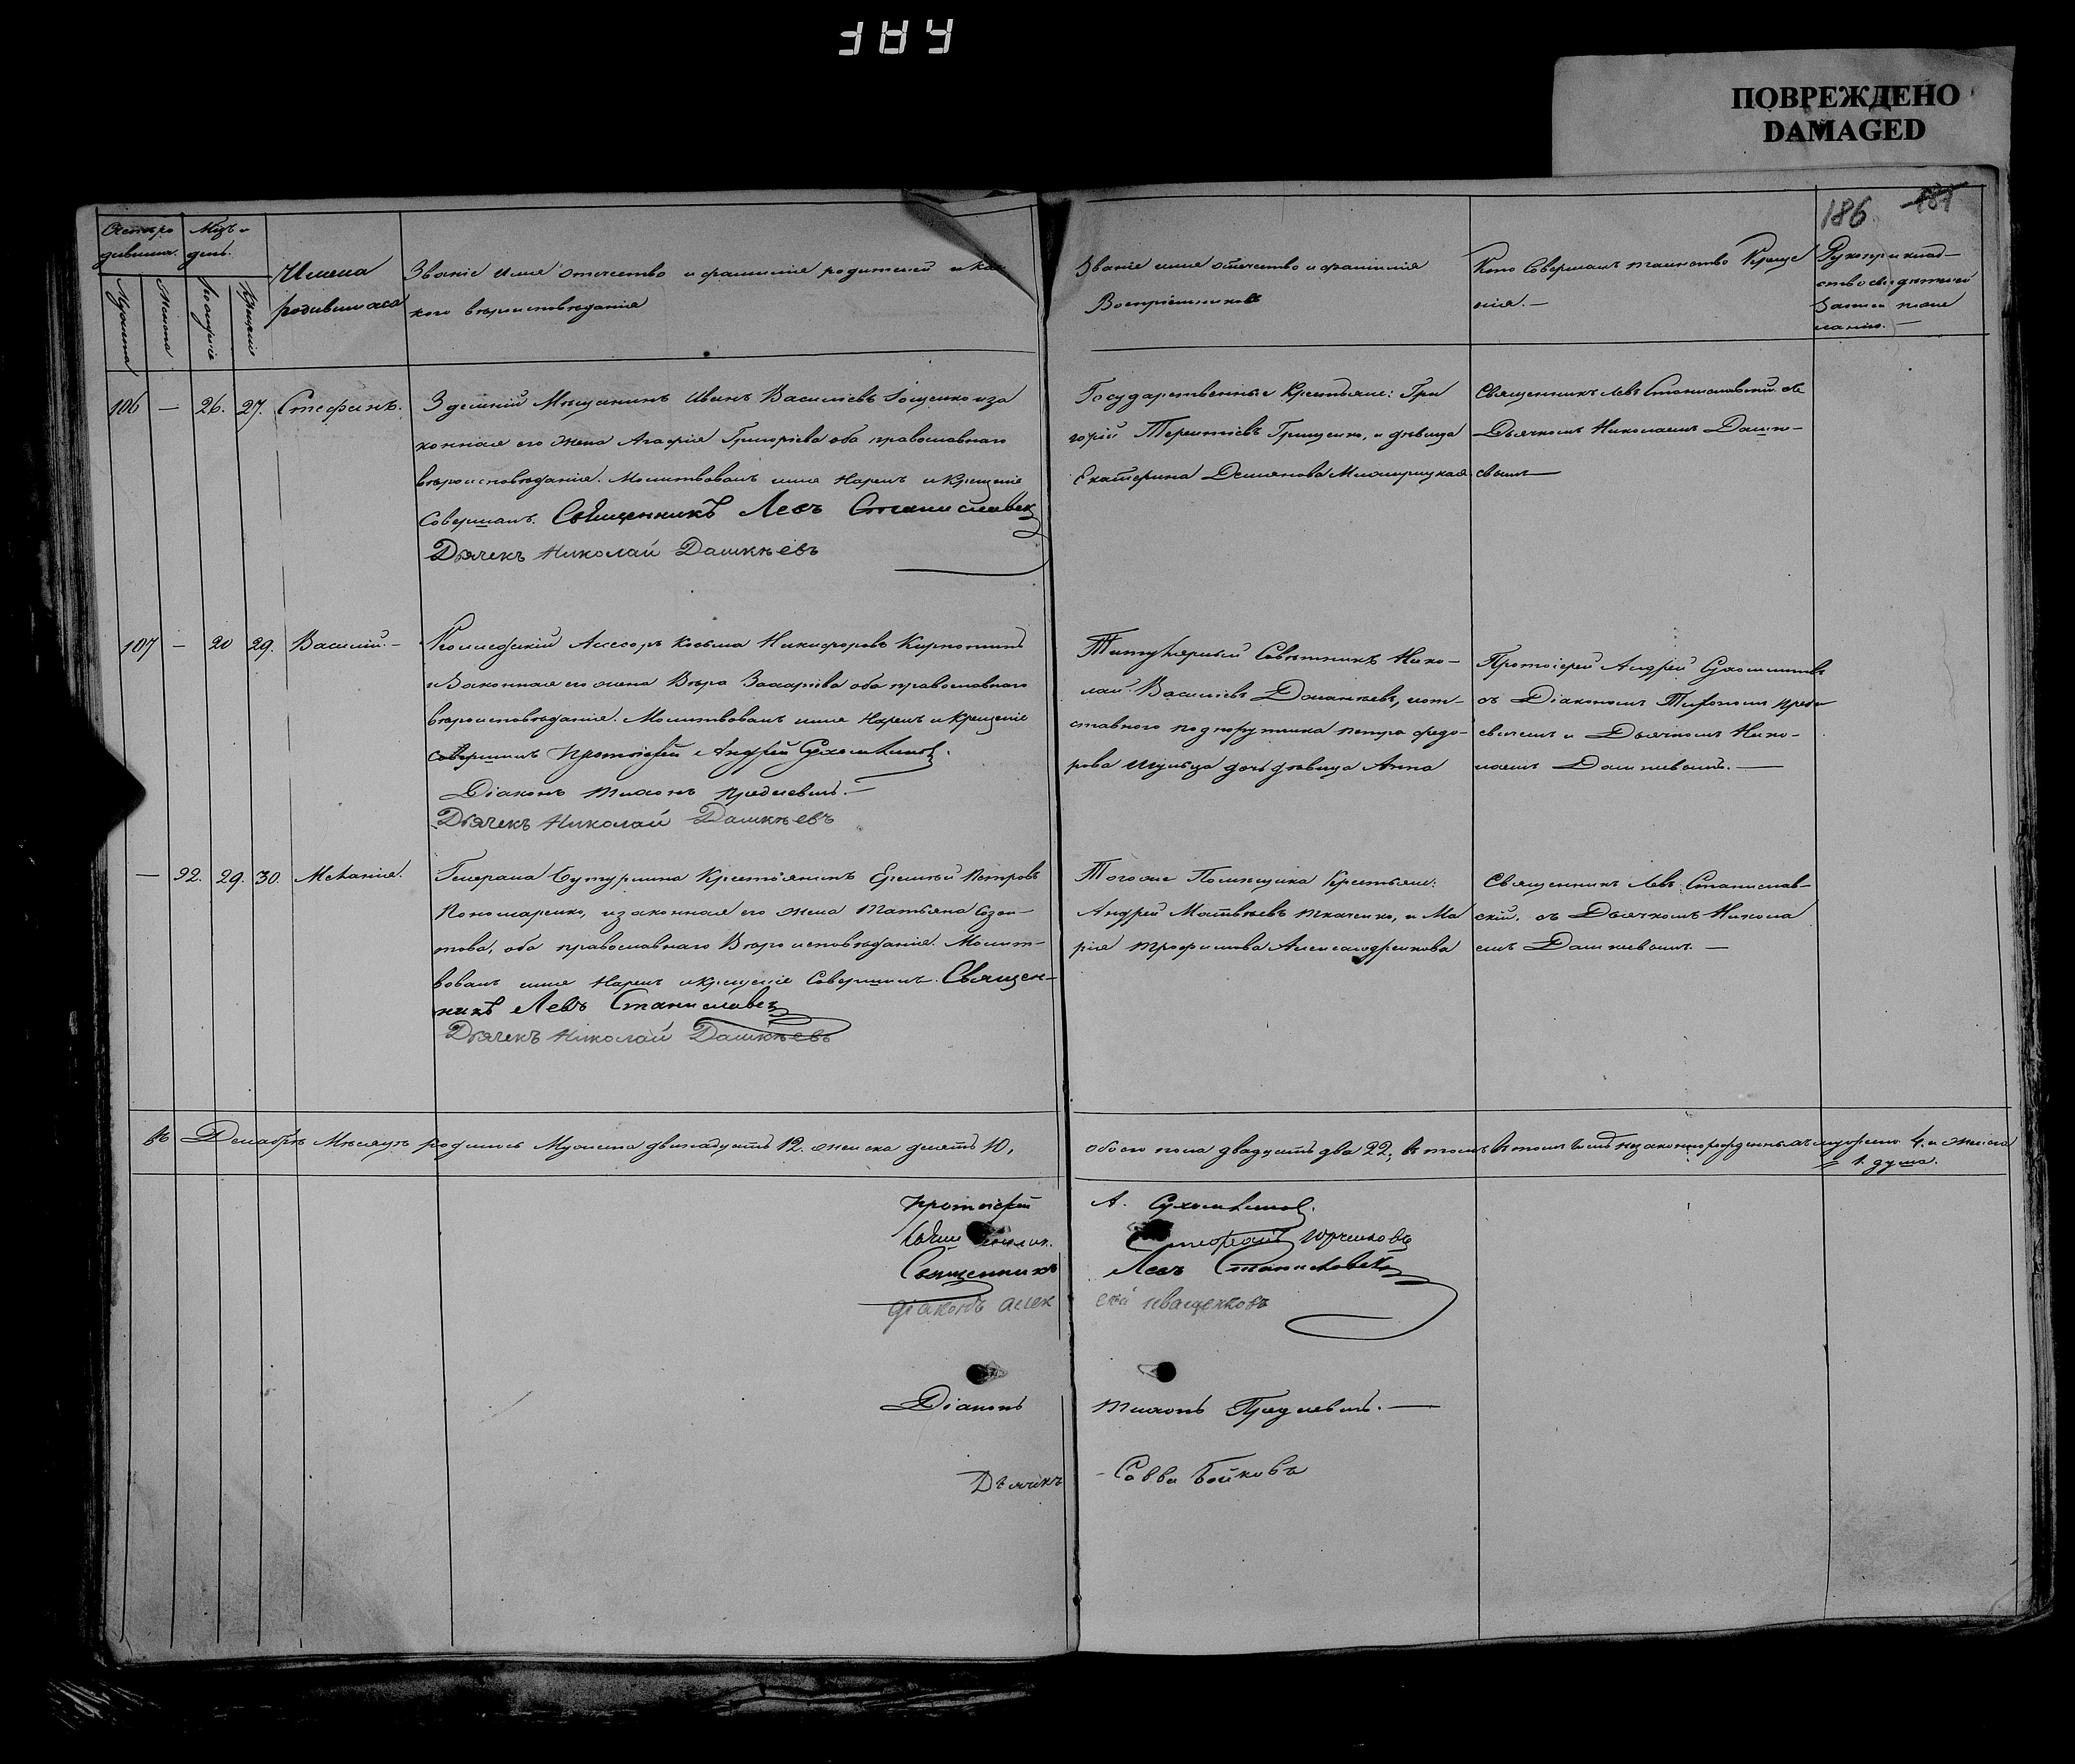 ПОВРЕЖДЕНО
DAMAGED
186
187
Счетъ ро
дившихъ.
Мѣц. и
день.
Мужеска
Женска
рожденіе
Крещеніе
Имена
родившихся
Званіе имя отечество и фамилія родителей и ка
кого вѣроисповѣданія
Званіе имя отечество и фамилія
Воспріемниковъ
Кто Совершалъ таинство Креще
нія. —
Рукоприклад—
ство свидетелей
записи по же
ланію. —
106 — 26. 27. Стефанъ.
Здешній Мѣщанинъ Иванъ Василіевъ и за
конная его жена Агафія Григоріева оба православнаго
вѣроисповѣданія. Молитвовалъ имя Нарекъ и Крещеніе
Совершалъ. Священникъ Левъ Станиславск
Дьячекъ Николай Дашкѣевъ
Государственные Крестьяне: Гри
горій Терентіевъ Грищенко, и дѣвица
Екатерина Демянова
Священникъ Левъ Станиславскій съ
Дьячкомъ Николаемъ Дашк—
евымъ —
107 — 20 29. Василій. —
Коллежскій Асессоръ Косьма Никифоровъ Кирпотинъ
и Законная его жена Вѣра Захаріева оба православнаго
вѣроисповѣданія. Молитвовалъ имя Нарекъ и Крещеніе
совершилъ протоіерей Андрей Сухомлиновъ.
Діаконъ Тихонъ —
Дьячекъ Николай Дашкѣевъ
Титулярный Совѣтникъ Нико—
лай Василіевъ и от—
ставного подпорутчика петра федо—
рова Шульца дочь дѣвица Анна
Протоіерей Андрей Сухомлиновъ
съ Діакономъ Тихономъ
и Дьячкомъ Нико—
лаемъ Дашкевымъ. —
— 92. 29. 30. Меланія.
Генерала Бутурлина Крестьянинъ Еремѣй Петровъ
Пономаренко, и законная его жена Татьяна Созон—
това, оба православнаго Вѣроисповѣданія. Молит—
вовалъ имя Нарекъ и крещеніе Совершилъ. Священ—
никъ Левъ Станиславск
Дьячекъ Николай Дашкѣевъ
Тогоже Помѣщика Крестьяне:
Андрей Матвѣевъ Ткаченко, и Ма
рія Трофимова Александренкова
Священникъ Левъ Станислав—
скій. съ Дьячкомъ Никола
емъ Дашкевымъ. —
Въ Декабрѣ Мѣсяцѣ родилось Мужеска двѣнадцать 12. женска десять 10,
обоего пола двадцать два 22; въ томъ въ томъ числѣ незаконнорожденныхъ мужеска 4. и женска
1. душа.
протоіерей А. Сухомлиновъ.
Стефанъ Юрченковъ
Священникъ Левъ Станиславск
діаконъ алексѣй иващенковъ
Діаконъ Тихонъ —
Дьячикъ Савва Бойковъ